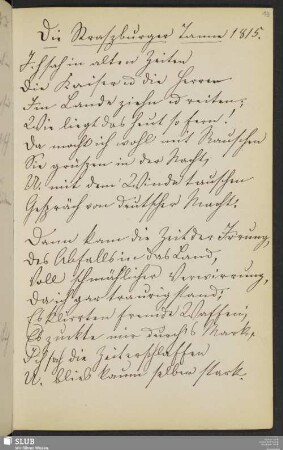 Die Straszburger Tanne 1815.
Ich sah in alten Zeiten
Die Kaiser u die Herren
Im Lande ziehn u reiten;
Wie liegt das heut so fern!
Da macht' ich wohl mit Rauschen
Sie grüszen in der Nacht,
U. mit dem Winde tauschen
Gespräch von deutscher Macht.
Dann kam die Zeit der Irrung,
Des Abfalls in das Land,
Voll schmählicher Verwirrung,
Da ich gar traurig stand;
Es klirrten fremde Waffen,
Es zuckte mir durchs Mark,
Ich sah die Zeit erschlaffen
U. blieb kaum selber stark.
SLUB
Wir führen Wissen.